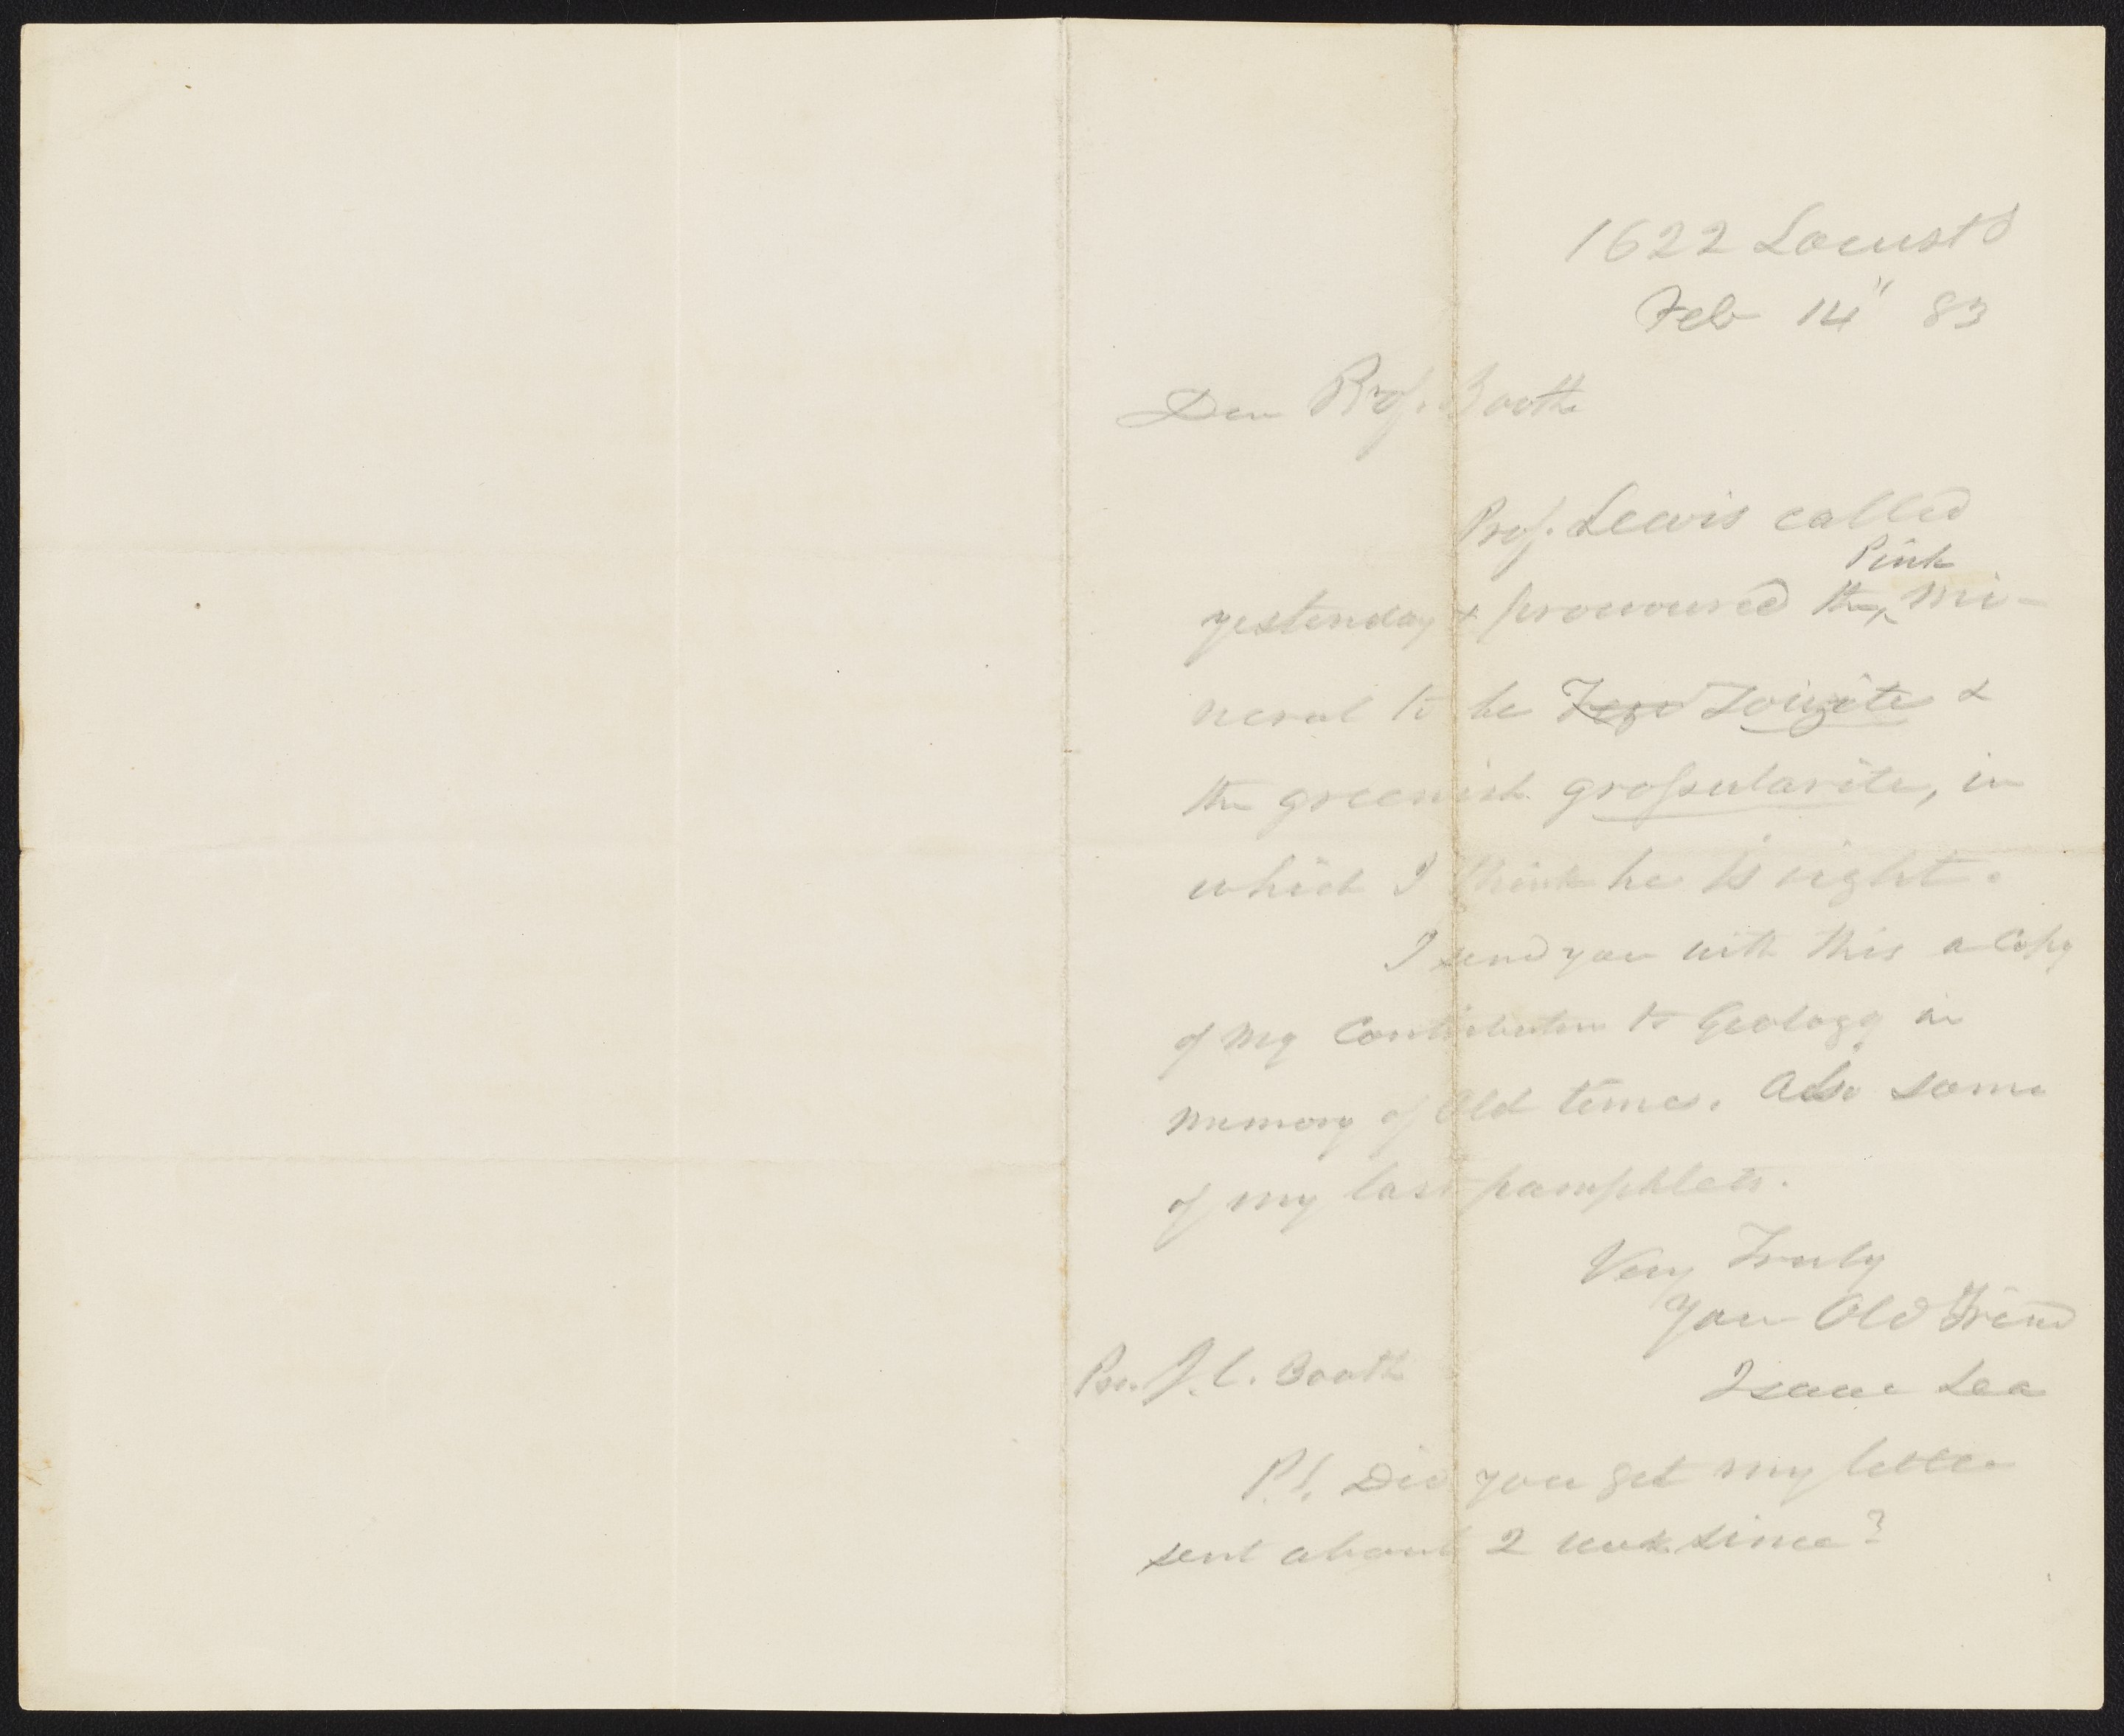 1622 Locust St
Feb 14" 83
Dear Prof. Booth
Prof. Lewis called
Pink
yesterday & pronounced the mi-
neral to be Zoizite &
the greenish grossularite, in
which I think he is right.
I send you with this a Copy
of my Contribution to Geology in
memory of Old times. Also some
of my last pamphlets.
Very Truly
Your Old Friend
Prof. J. C. Booth
Isaac Lea
P.S. Did you get my letter
sent about 2 weeks since?